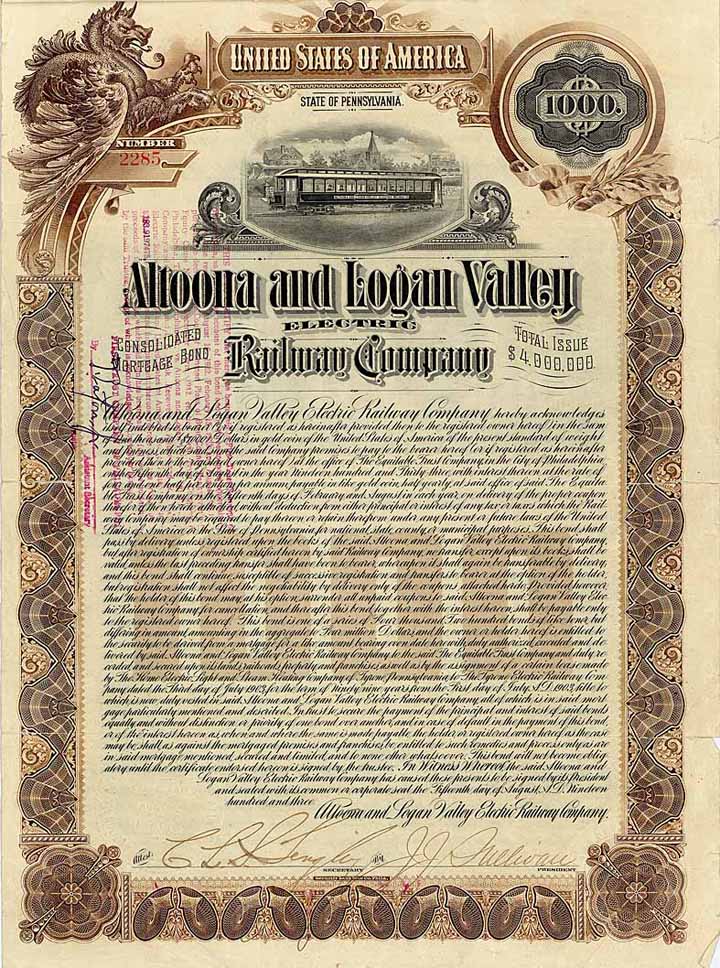 UNITED STATES OF AMERICA
STATE OF PENNSYLVANIA.
1000.
NUMBER
2285
Altoona and Logan Valley
ELECTRIC
Railway Company
CONSOLIDATED
MORTGAGE BOND
TOTAL ISSUE
$ 4,000,000.
Altoona and Logan Valley Electric Railway Company hereby acknowledges
itself bound to bearer or if registered as hereinafter provided then to the registered owner hereof in the sum
of One thousand Dollars in gold coin of the United States of America of the present standard of weight
and fineness, which said sum the said Company promises to pay to the bearer hereof or if registered as hereinafter
provided then to the registered owner hereof at the office of The Equitable Trust Company in the City of Philadelphia
in the year Nineteen hundred and thirty three, with interest thereon at the rate of
per annum payable in like gold coin, half yearly, at said office of said The Equita-
ble Trust Company on the fifteenth days of February and August in each year, on delivery of the proper coupon
therefor then hereto attached without deduction from either principal or interest of any tax or taxes which the Rail-
way Company may be required to pay thereon or retain therefrom under any present or future laws of the United
States of America or the State of Pennsylvania for national, state, county or municipal purposes. This bond shall
pass by delivery, unless registered upon the books of the said, Altoona and Logan Valley Electric Railway Company
but after registration of ownership certified hereon by said Railway Company, no transfer except upon its books shall be
valid, unless the last preceding transfer shall have been to bearer, whereupon it shall again be transferable by delivery,
and this bond shall continue susceptible of successive registration and transfers to bearer at the option of the holder,
but registration shall not affect the negotiability by delivery only of the coupons attached hereto. Provided however
that the holder of this bond may at his option, surrender all unpaid coupons to said, Altoona and Logan Valley Elec-
tric Railway Company for cancellation, and thereafter this bond, together with the interest hereon, shall be payable only
to the registered owner hereof. This bond is one of a series of Four thousand Two hundred bonds of like tenor but
differing in amount, amounting in the aggregate to Four million Dollars and the owner or holder hereof is entitled to
the security to be derived from a mortgage for a like amount bearing even date herewith, duly authorized, executed and de-
livered by said, Altoona and Logan Valley Electric Railway Company to the said The Equitable Trust Company and duly re-
corded and secured upon its lands, railroads, property and franchises as well as by the assignment of a certain lease made
by The Home Electric Light and Steam Heating Company of Tyrone Pennsylvania to The Tyrone Electric Railway Com-
pany dated the Third day of July 1903, for the term of Ninety nine years from the First day of July, A.D. 1903, title to
which is now duly vested in said, Altoona and Logan Valley Electric Railway Company, all of which is in said mort-
gage particularly mentioned and described. In trust to secure the payment of the principal and interest of said bonds
equally and without distinction or priority of one bond over another, and in case of default in the payment of this bond
or of the interest hereon as, when and where the same is made payable the holder or registered owner hereof as the case
may be, shall as against the mortgaged premises and franchises, be entitled to such remedies and process only as are
in said mortgage mentioned, secured and limited, and to none other whatsoever. This bond will not become oblig-
atory until the certificate endorsed hereon is signed by the trustee. In Witness Whereof the said Altoona and
Logan Valley Electric Railway Company has caused these presents to be signed by its President
and sealed with its common or corporate seal the Fifteenth day of August, A.D. Nineteen
hundred and three.
Altoona and Logan Valley Electric Railway Company.
Attest.
SECRETARY
By J. J. Sullivan
PRESIDENT